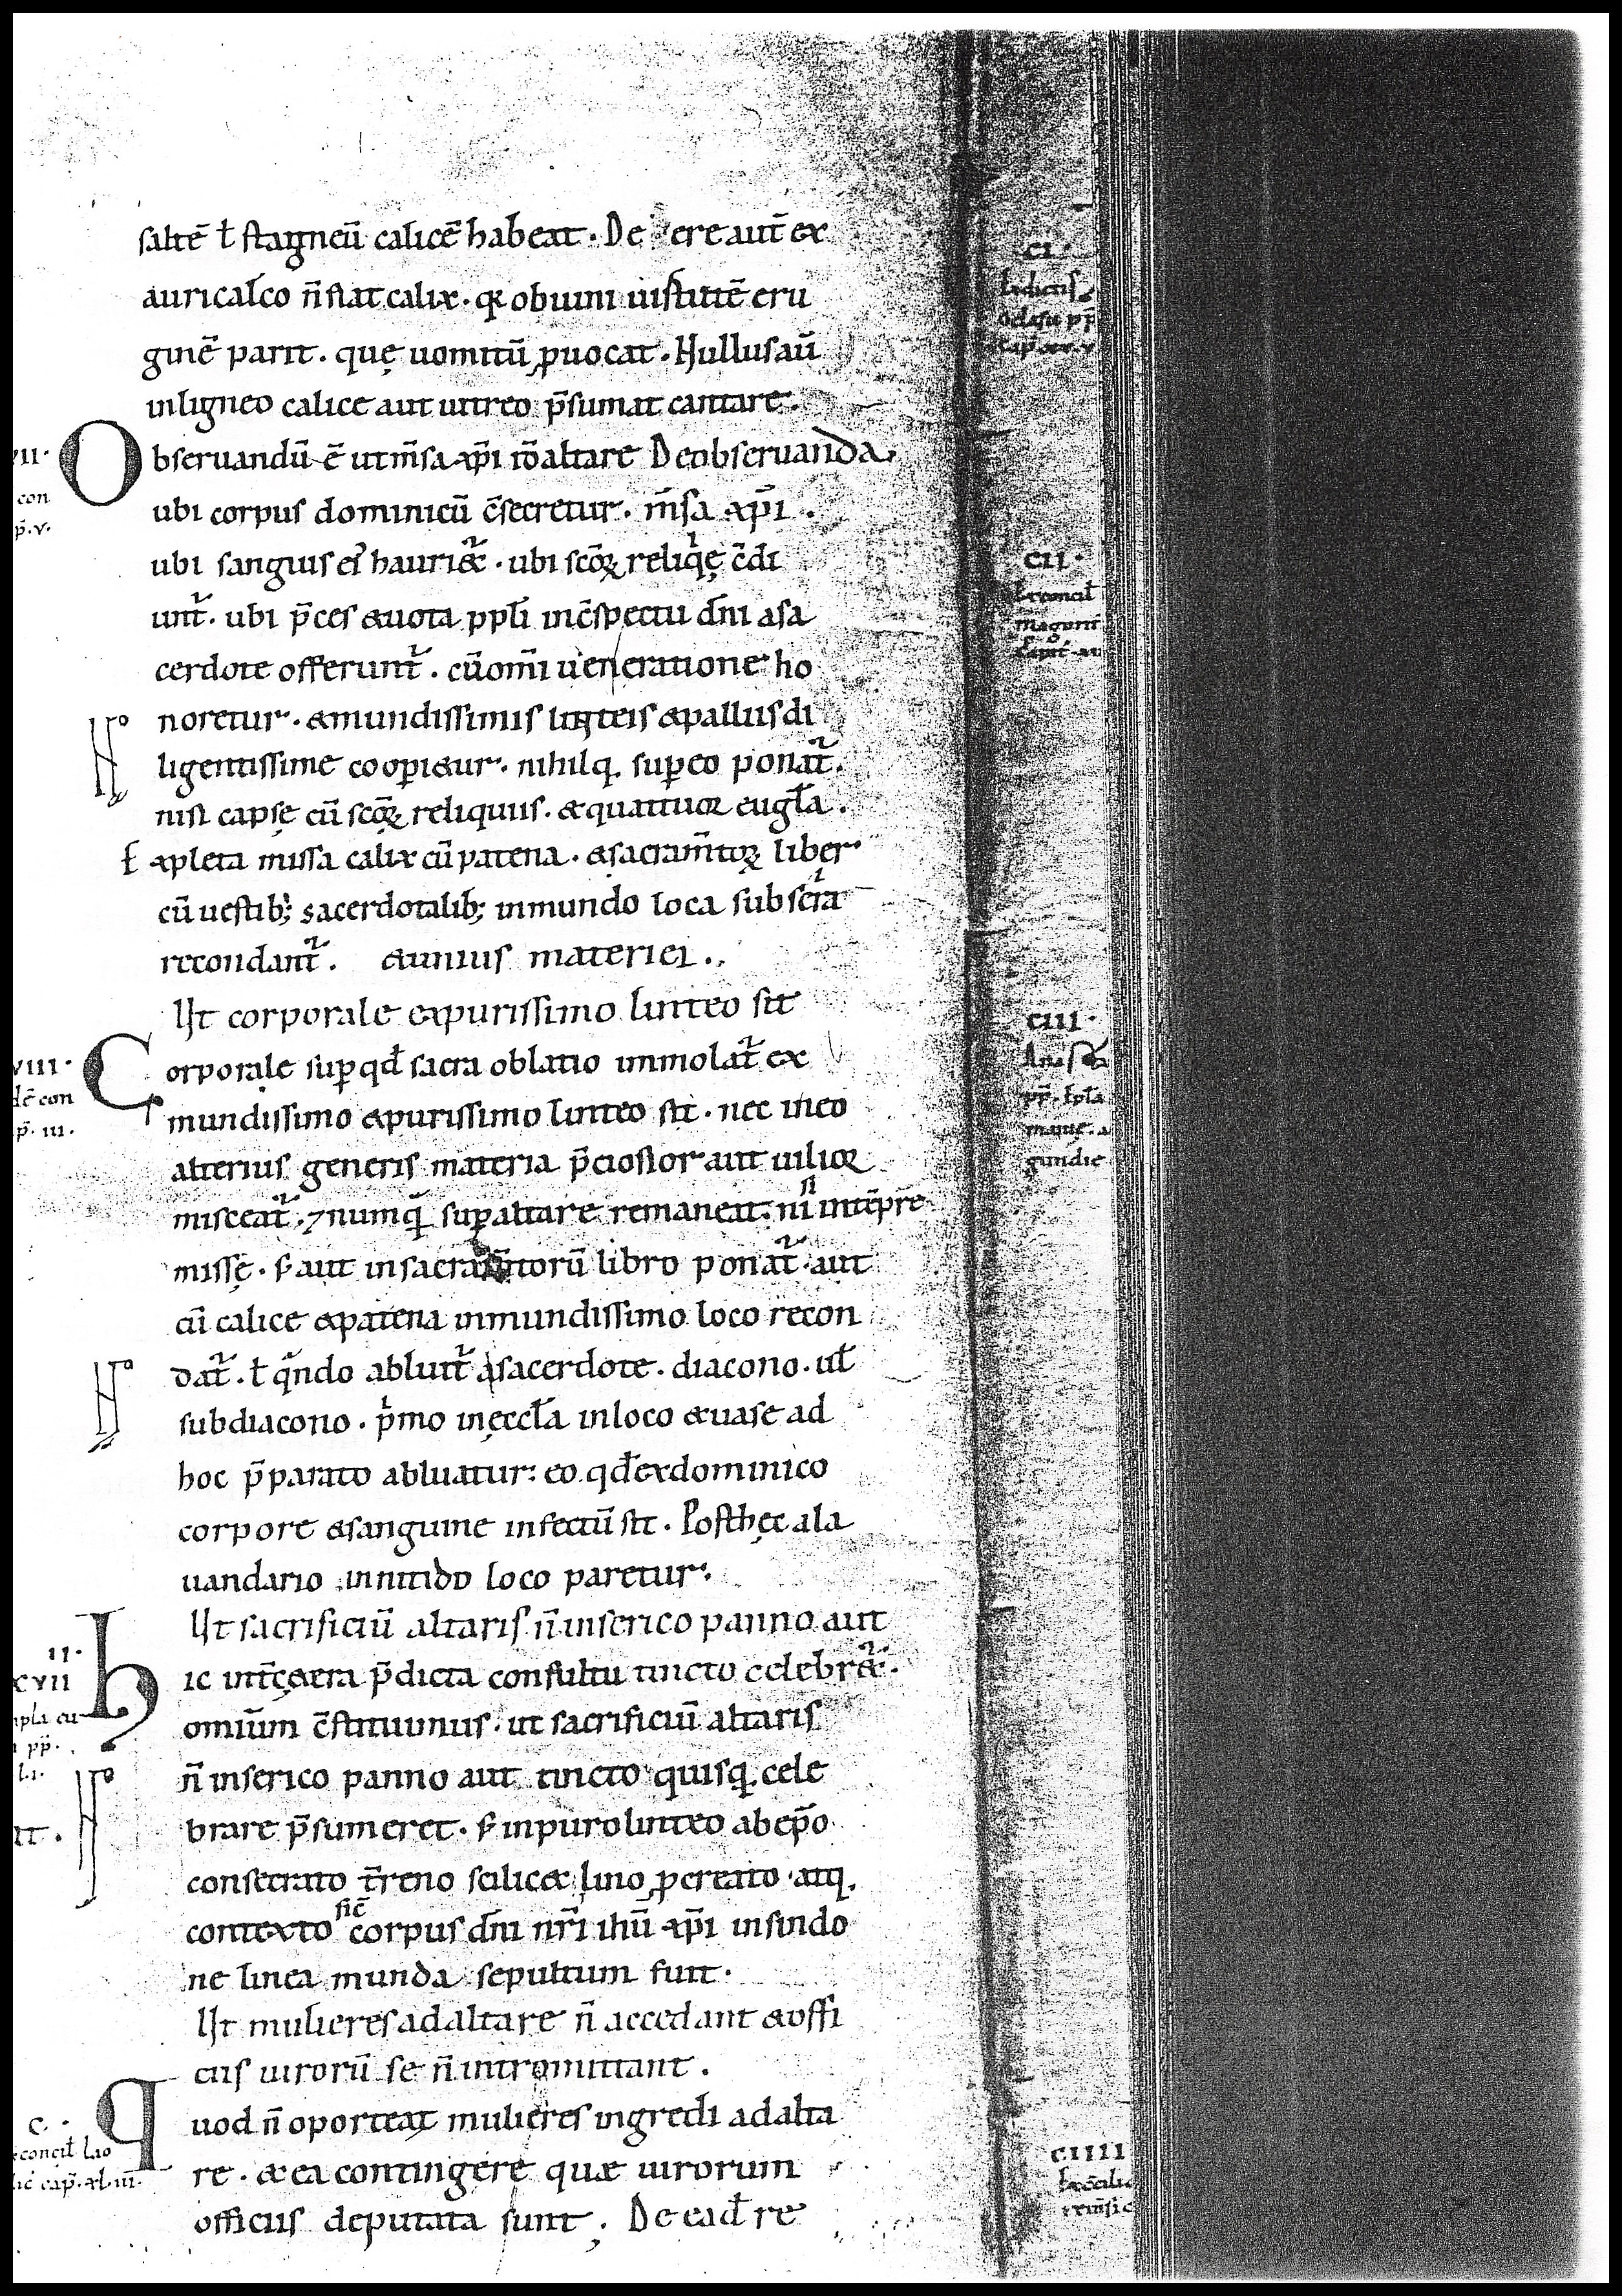 saltē ł stagneū calicē habeat · De ere aut̄ ex
auricalco n̄ fiat calix · q̄ ob uini uirtutē eru
ginē parit · quę uomitū ꝓuocat · Nullus aū
in ligneo calice aut uitreo p̄sumat cantare ·
Obseruandū ē ut m̄sa xp̄i ió altare De obseruanda
ubi corpus dominicū c̄secretur · m̄sa xp̄i ·
ubi sanguis ei' haurit᷑ · ubi sc̄oꝝ reliq̄ę c̄di
unt᷑ · ubi p̄ces & uota ppłi in c̄spectu dn̄i a sa
cerdote offerunt᷑ · cū om̄i ueneratione ho
noretur · & mundissimis linteis & palliis di
ligentissime cooꝑiatur · nihilq; suꝑ eo ponat᷑ ·
nisi capsę cū sc̄oꝝ reliquiis · & quattuor eugła ·
Expleta missa calix cū patena · & sacram̄toꝝ liber
cū uestib; sacerdotalib; in mundo loco sub sera
recondant᷑ · & unius materiei ·
Ut corporale ex purissimo linteo sit
VIII ·
dē con
p̄ · III ·
Corporale suꝑ qđ sacra oblatio immolat᷑ ex
mundissimo & purissimo linteo sit · nec in eo
alterius generis materia p̄ciosior aut uilior
misceat᷑ · ⁊ numq̄ suꝑ altare remaneat · nisi in tēpre
missę · s; aut in sacram̄torū libro ponat᷑ · aut
cū calice & patena in mundissimo loco recon
dat᷑ · ł q̄ndo abluit᷑ a sacerdote · diacono · uł
subdiacono · p̄mo in ęccła in loco & uase ad
hoc p̄parato abluatur : eo qđ ex dominico
corpore & sanguine infectū sit · Post hęc a la
uandario in nitido loco paretur ·
Ut sacrificiū altaris n̄ in serico panno aut
II ·
CVII
Hic int̄ cętera p̄dicta consultu tincto celebret᷑ ·
omiūm c̄stituimus · ut sacrificiū altaris
n̄ in serico panno aut tincto quisq; cele
brare p̄sumeret · s; in puro linteo ab ep̄o
consecrato t̄reno scilic& lino ꝓcreato · atq;
contexto sic̄ corpus dn̄i nr̄i ihū xp̄i in sindo
ne linea munda sepultum fuit ·
Ut mulieres ad altare n̄ accedant & offi
ciis uirorū se n̄ intromittant ·
C ·
concił Lao
Quod n̄ oporteat mulieres ingredi ad alta
re · & ea contingere quæ uirorum
officiis deputata sunt · De eađ re
CI ·
CII ·
CIII ·
CIIII